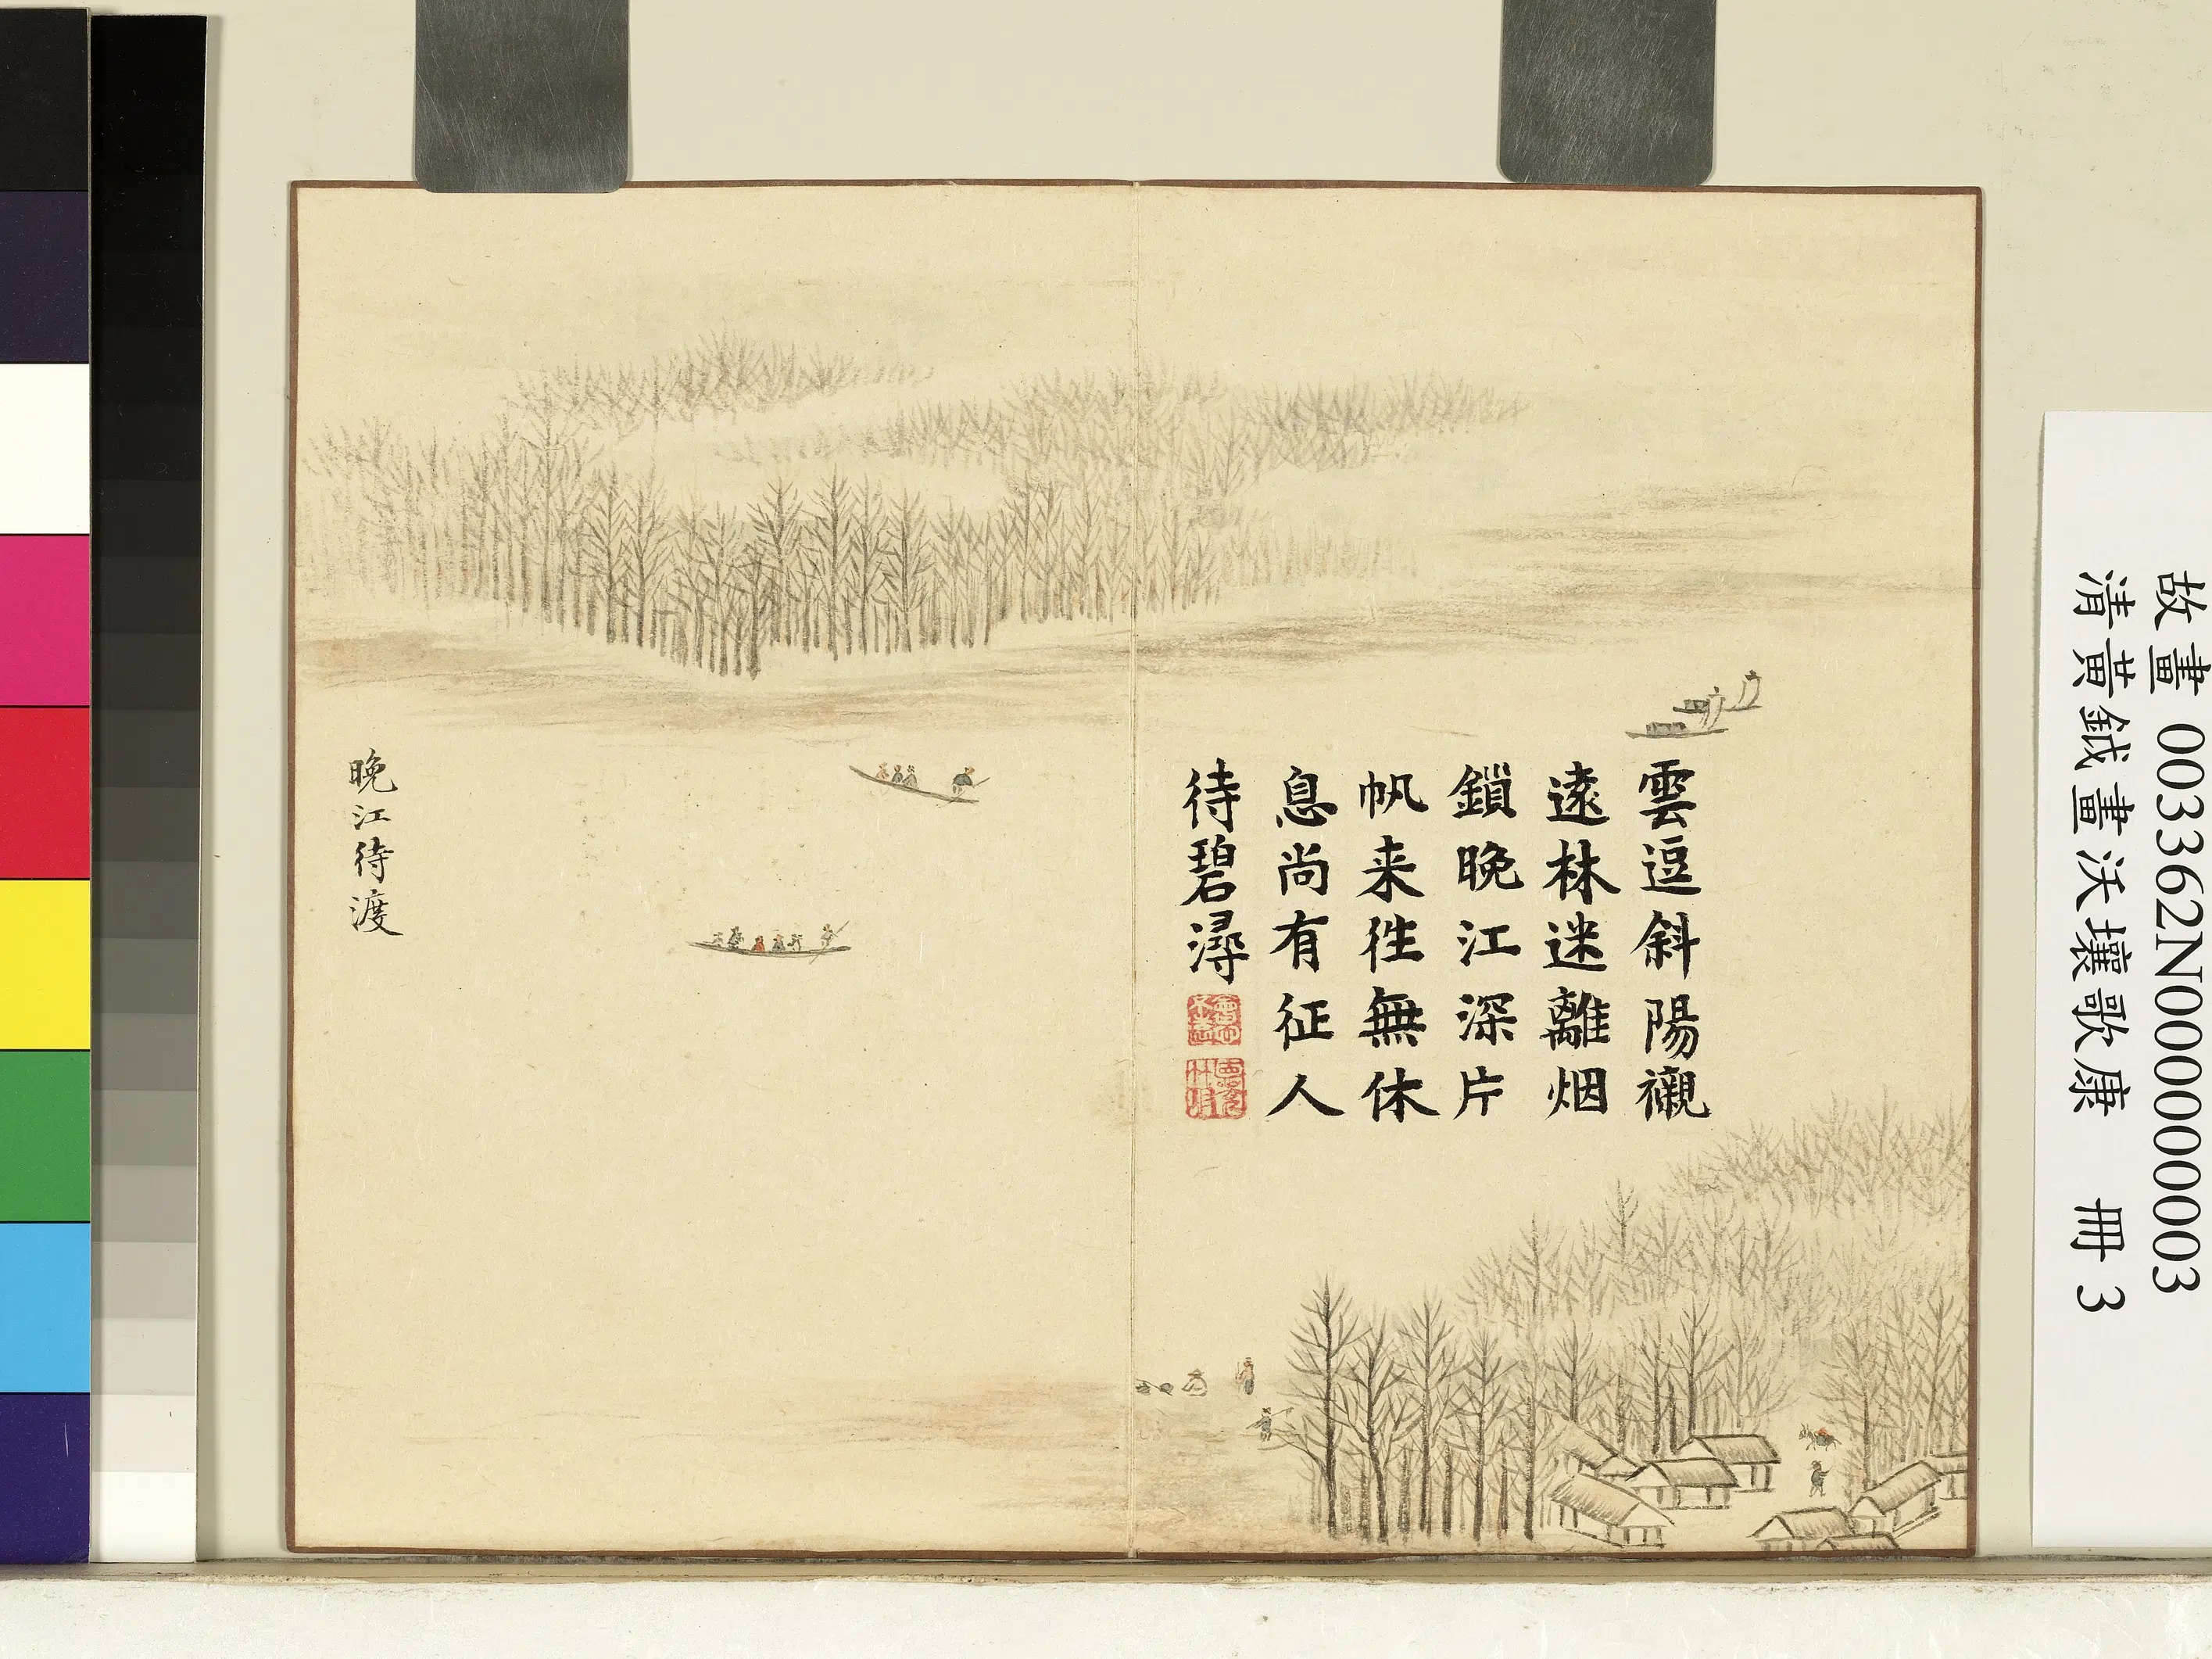 雲逗斜陽襯
遠林迷離烟
鎖晚江深片
帆来往無休
息尚有征人
待碧潯
晚江待渡
故畫 003362N000000003
清黃鉞畫沃壤歌康 冊 3